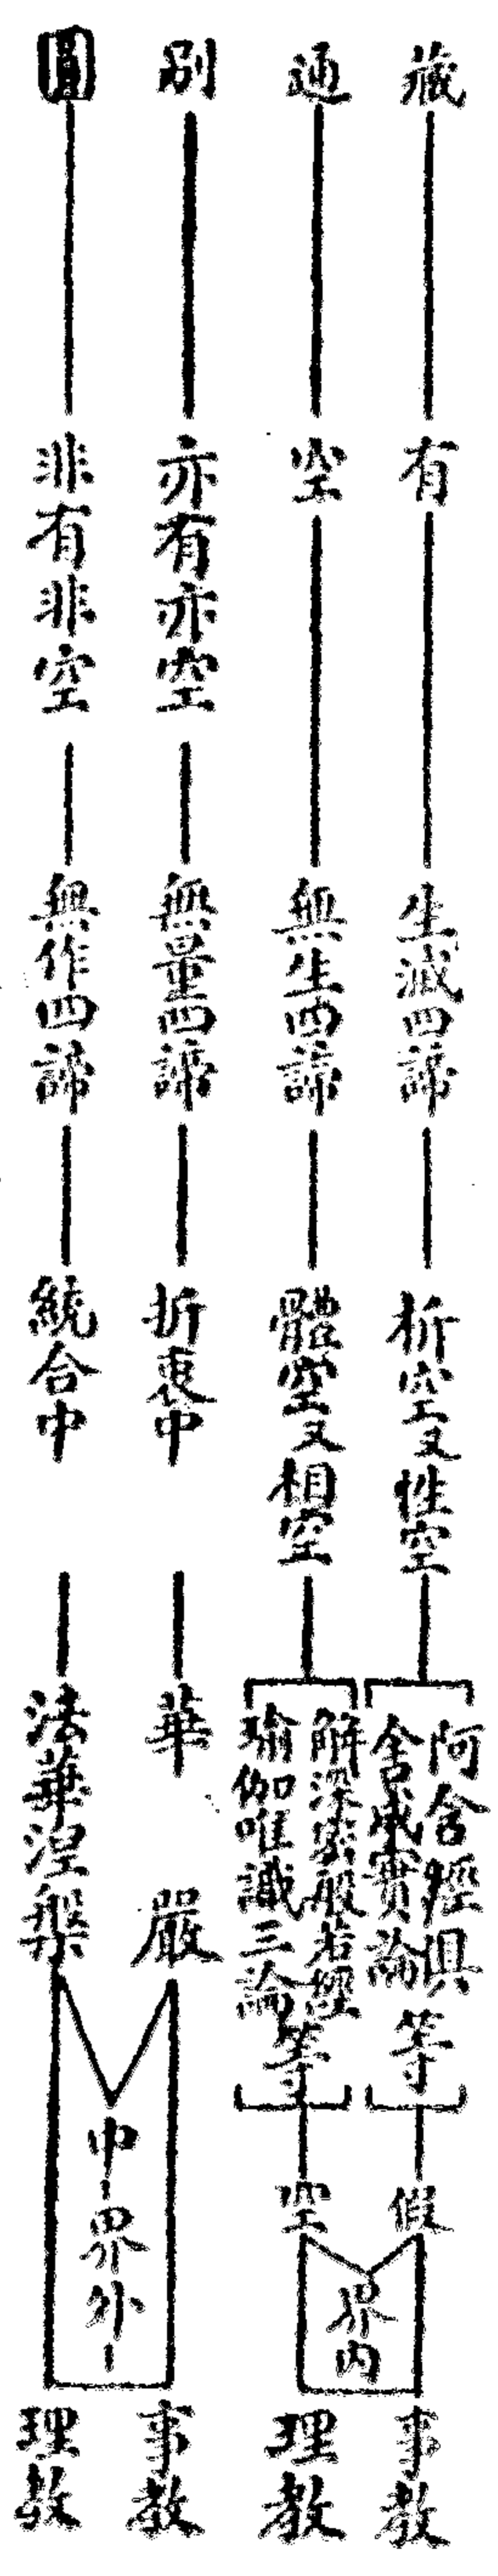 藏
有
生滅四諦
析空又性空
阿含經俱
舍成實論
等
假
事教
通
空
無生四諦
體空又相空
解深密般若經
瑜伽唯識三論
等
空
理教
界內
別
亦有亦空
無量四諦
折衷中
華嚴
事教
圓
非有非空
無作四諦
統合中
法華涅槃
理教
中
界外